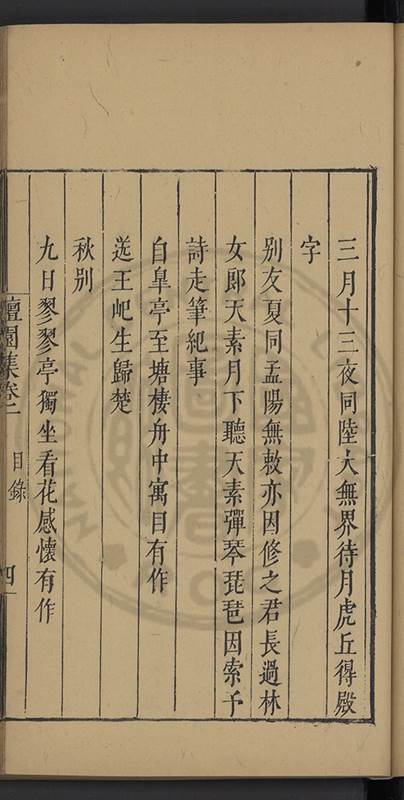 三月十三夜同陸大無界待月虎丘得殿
字
別友夏同孟陽無敕亦因修之君長過林
女郎天素月下聽天素彈琴琵琶因索予
詩走筆紀事
自皐亭至塘棲舟中寓目有作
送王屺生歸楚
秋別
九日翏翏亭獨坐看花感懷有作
檀園集卷二 目錄 四